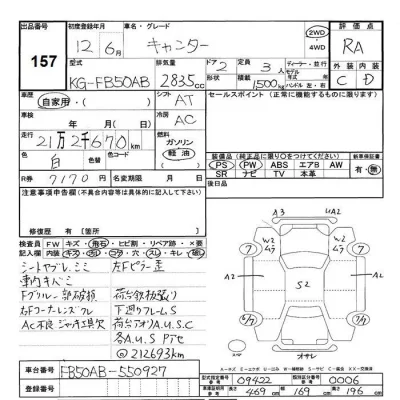 出品番号 初度登録年月 車名・グレード 評価点
157 12年 6月 キャンター 2WD 4WD RA
型式 排気量 ドア 定員 ディーラー・並行 外装 内装
KG-FB50AB 2835cc 2 3人 C D
形状 積載量 1500kg ハンドル 左・右
車歴 自家用・( ) シフト AT セールスポイント(正常に機能するものに限ります)
車検 年 月 冷房 AC
走行 21万2千670km 燃料 ガソリン
色 白 色替 色コード 軽油
R券 7170円 名変期限 月 日
装備品(純正品に限り○をつけてください) 新車時保証書
PS PW ABS エアB AW 有・無
SR ナビ TV 本革
注意事項申告欄(不具合内容等は具体的に記入して下さい) 後日品
修復歴 有 [箇所 ]
検査員 FW キズ・飛石・ヒビ割・リペア跡・×要
記入欄 内装
シートヤブレ、シミ 左Fピラー歪
車内キズ、ミ
Fグリル一部破損 荷台鉄板張り
右Fコーナーレンズワレ 下廻りフレームS
AC不良 ジャッキ具欠 荷台アオリA.U.S.C
各A.U.S Pアセ
@212693km
A3 UA2
W2 W2
ムラ ムラ
7 7
A2 S2 A2
サレ
A=キズ E=エクボ U=凹み W=補修跡 S=サビ C=腐食 XX=交換済
車台番号 FB50AB-550927
登録番号
型式指定番号 09422 類別区分番号 0006
長さ 469cm 幅 169cm 高さ 196cm